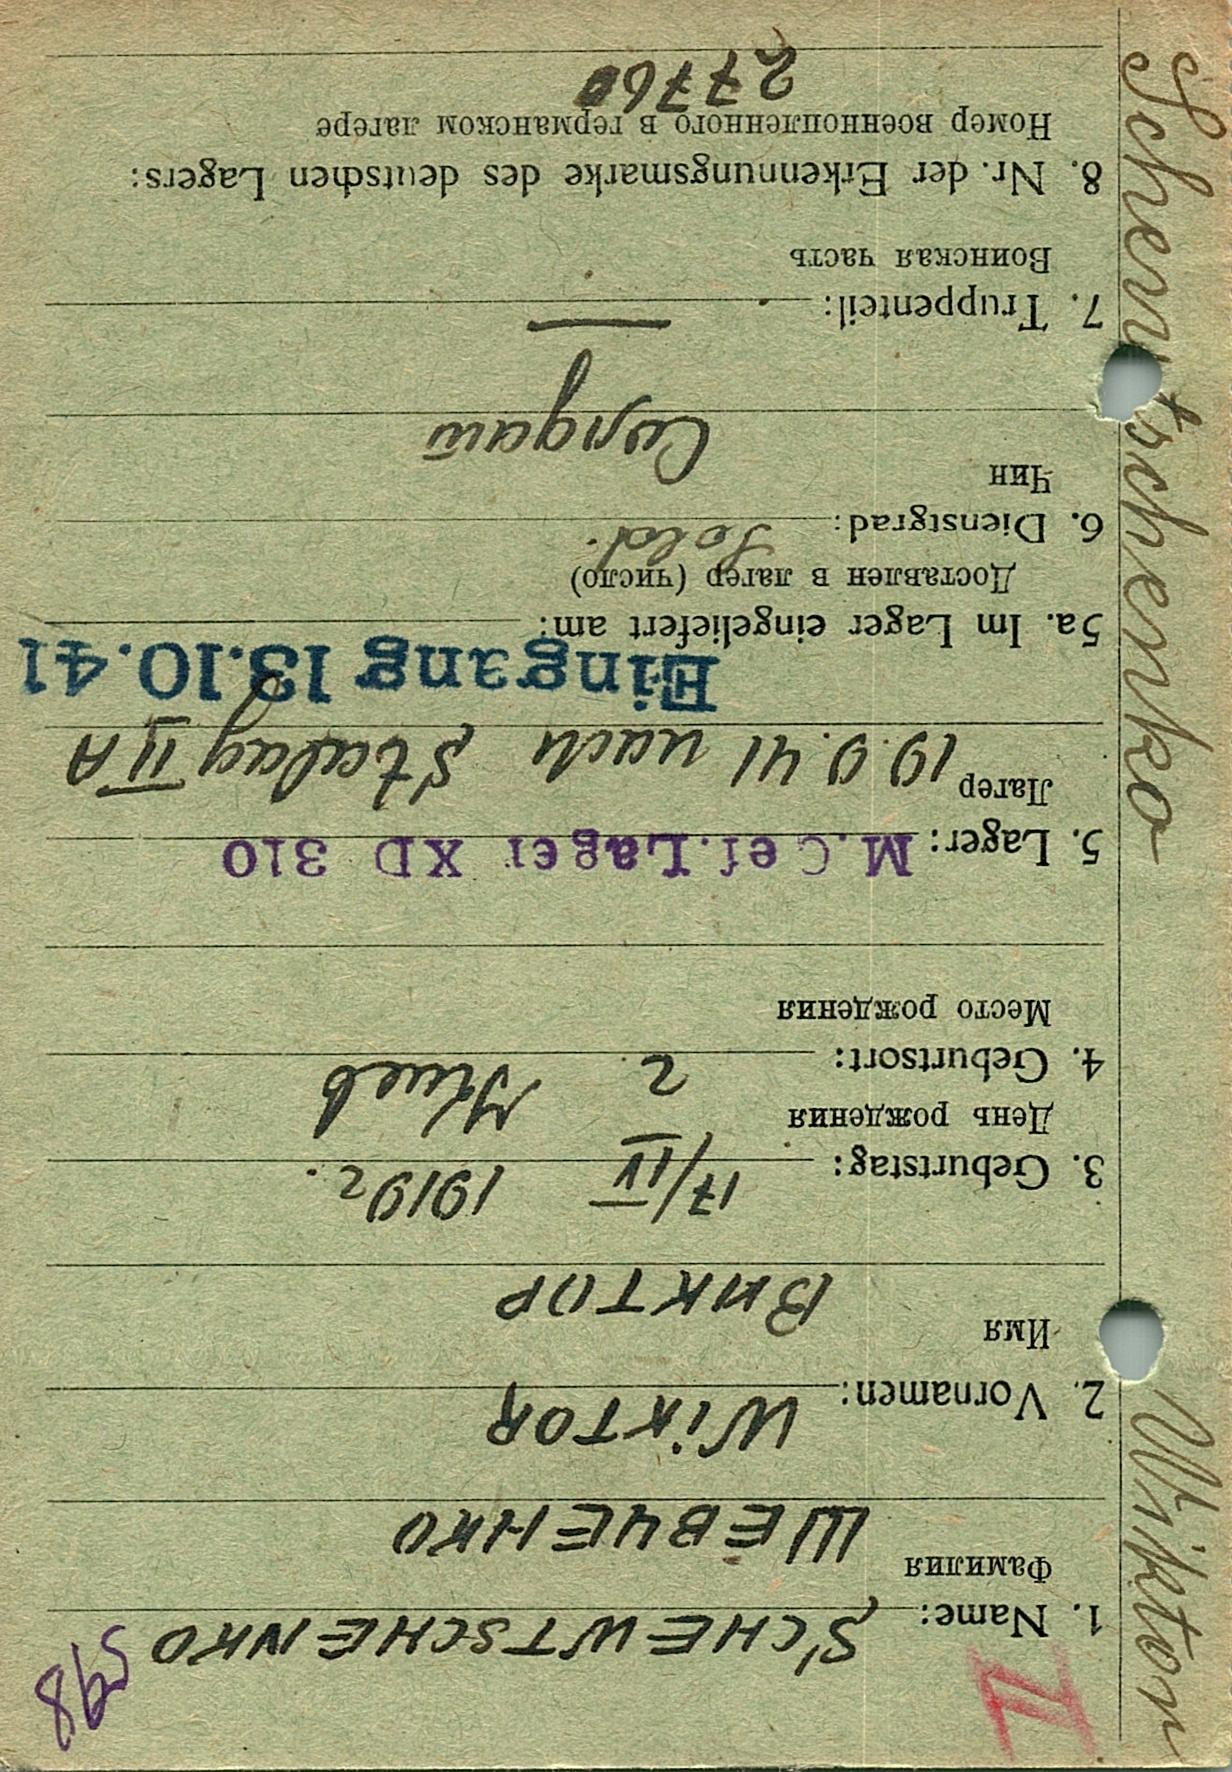 II
598
1. Name: SCHEWTSCHENKO
Фамилия
ШЕВЧЕНКО
2. Vornamen: WiKTOR
Имя
ВИКТОР
3. Geburtstag: 17/IV 1919 г.
День рождения
4. Geburtsort: г. Киев
Место рождения
5. Lager: M.Gef.Lager XD 310
Лагер 19.9.41 nach Stalag II A
Eingang 13.10.41
5a. Im Lager eingeliefert am:
Доставлен в лагер (число)
6. Dienstgrad: Sold.
Чин
Солдат
7. Truppenteil: —
Воинская часть
8. Nr. der Erkennungsmarke des deutschen Lagers:
Номер военнопленного в германском лагере
27760
Schewtschenko Wiktor